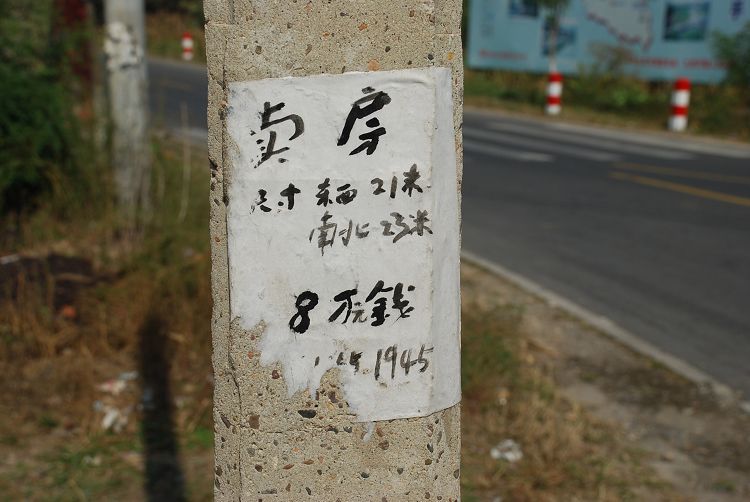 卖房
尺寸 东西 21米
南北 23米
8万钱
1945